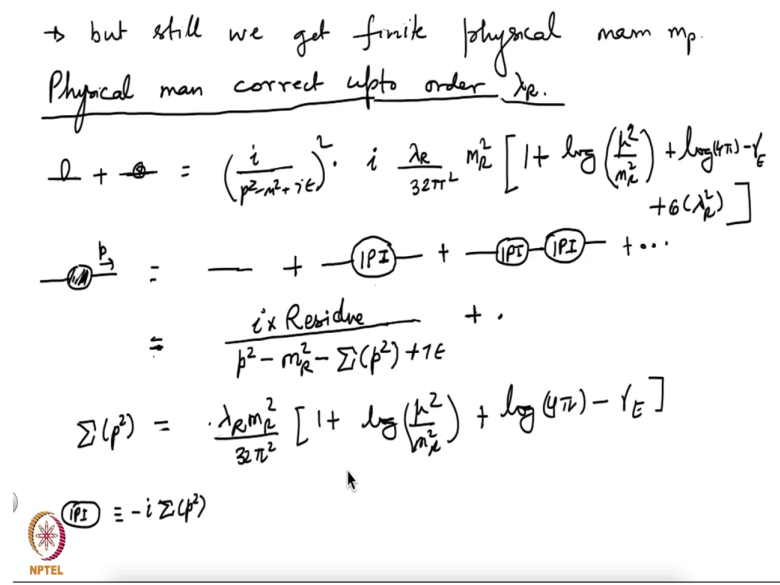 → but still we get finite physical mass mp.
Physical mass correct upto order λ_R.
+ = (i / p²-m²+iε)² · i λ_R / 32π² m_R² [1 + log(μ²/m_R²) + log(4π) - γ_E + O(λ_R²)]
p = — + 1PI + 1PI 1PI + ...
= i × Residue / p² - m_R² - Σ(p²) + iε + .
Σ(p²) = λ_R m_R² / 32π² [1 + log(μ²/m_R²) + log(4π) - γ_E]
1PI ≡ -i Σ(p²)
NPTEL